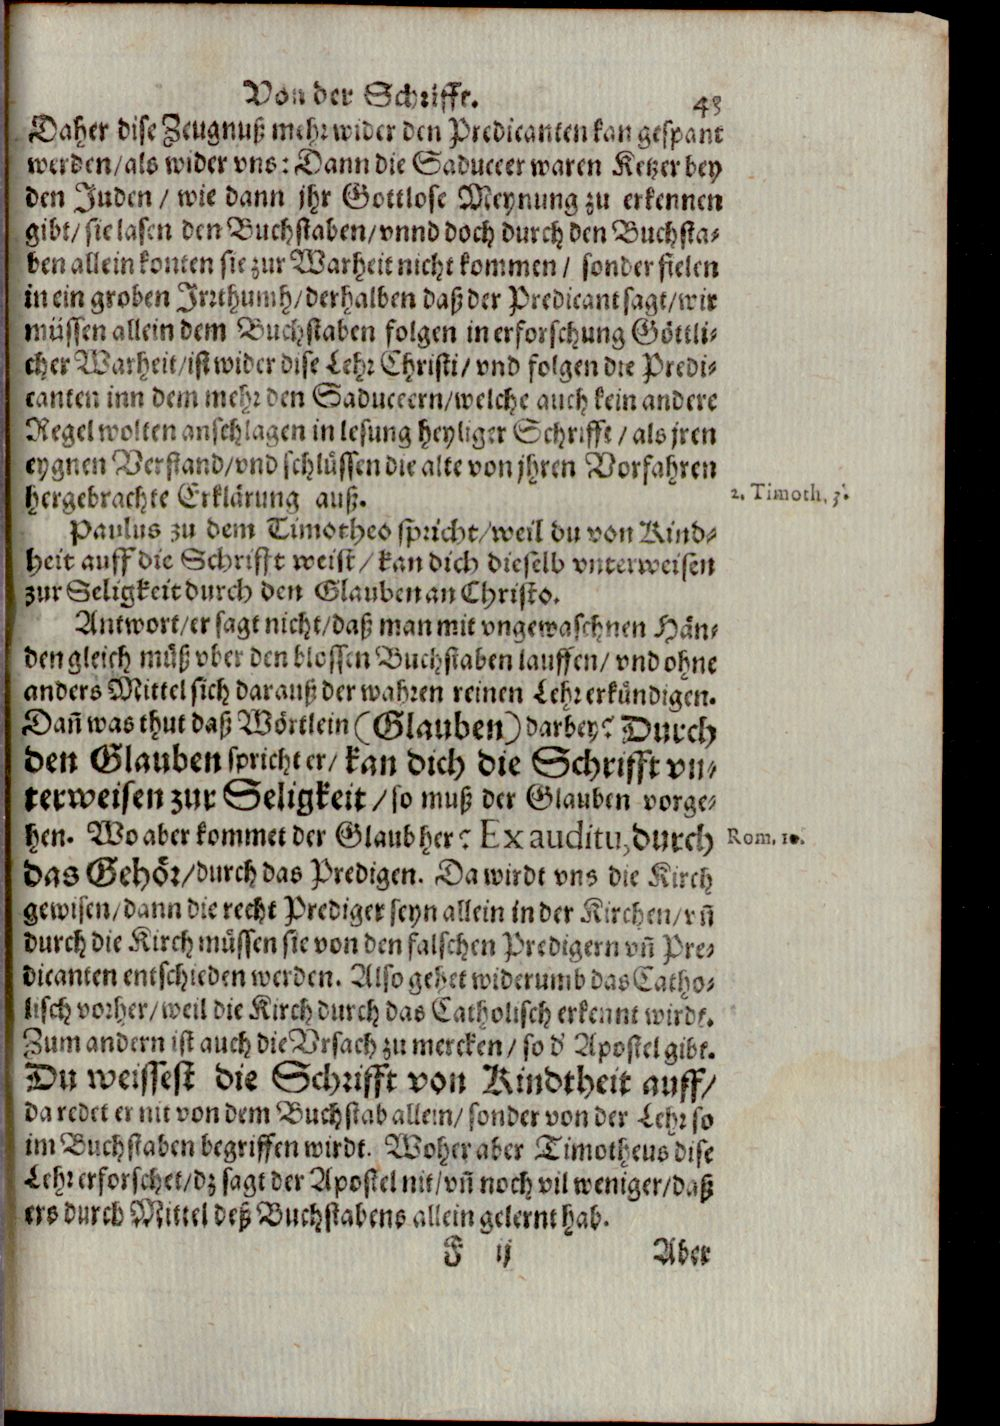 Von der Schrifft.
43
Daher dise Zeugnuß mehr wider den Predicanten kan gespant
werden/als wider vns: Dann die Saduceer waren Ketzer bey
den Juden / wie dann jhr Gottlose Meynung zu erkennen
gibt/ sie lasen den Buchstaben/vnnd doch durch den Buchsta-
ben allein konten sie zur Warheit nicht kommen / sonder fielen
in ein groben Irrthumb/derhalben daß der Predicant sagt/wir
müssen allein dem Buchstaben folgen in erforschung Göttli-
cher Warheit/ist wider dise Lehr Christi/ vnd folgen die Predi-
canten inn dem mehr den Saduceern/welche auch kein andere
Regel wolten anschlagen in lesung heyliger Schrifft / als jren
eygnen Verstand/vnd schlüssen die alte von jhren Vorfahren
hergebrachte Erklärung auß.
2. Timoth. 3.
Paulus zu dem Timotheo spricht/weil du von Kind-
heit auff die Schrifft weist / kan dich dieselb vnterweisen
zur Seligkeit durch den Glauben an Christo.
Antwort/er sagt nicht/daß man mit vngewaschnen Hän-
den gleich müß vber den blossen Buchstaben lauffen/ vnd ohne
anders Mittel sich darauß der wahren reinen Lehr erkündigen.
Dañ was thut daß Wörtlein (Glauben) darbey? Durch
den Glauben spricht er/ kan dich die Schrifft vn-
terweisen zur Seligkeit / so muß der Glauben vorge-
hen. Wo aber kommet der Glaub her? Ex auditu, durch
Rom. 10.
das Gehör/durch das Predigen. Da wirdt vns die Kirch
gewisen/dann die recht Prediger seyn allein in der Kirchen/vñ
durch die Kirch müssen sie von den falschen Predigern vñ Pre-
dicanten entschieden werden. Also gehet widerumb das Catho-
lisch vorher/weil die Kirch durch das Catholisch erkennt wirdt.
Zum andern ist auch die Vrsach zu mercken / so d' Apostel gibt.
Du weissest die Schrifft von Kindtheit auff/
da redet er nit von dem Buchstab allein/ sonder von der Lehr so
im Buchstaben begriffen wirdt. Woher aber Timotheus dise
Lehr erforschet/dz sagt der Apostel nit/vñ noch vil weniger/daß
ers durch Mittel deß Buchstabens allein gelernt hab.
F ij
Aber